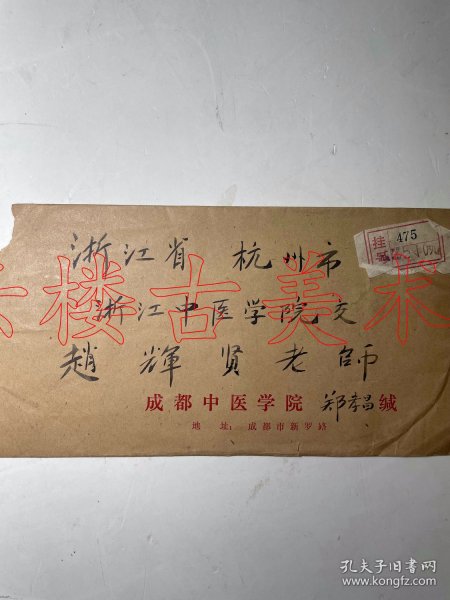 挂 475
浙江省 杭州市
浙江中医学院交
趙輝賢老師
成都中医学院 郑孝昌缄
地 址：成都市新罗路
楼古美术
孔夫子旧书网
www.kongfz.com